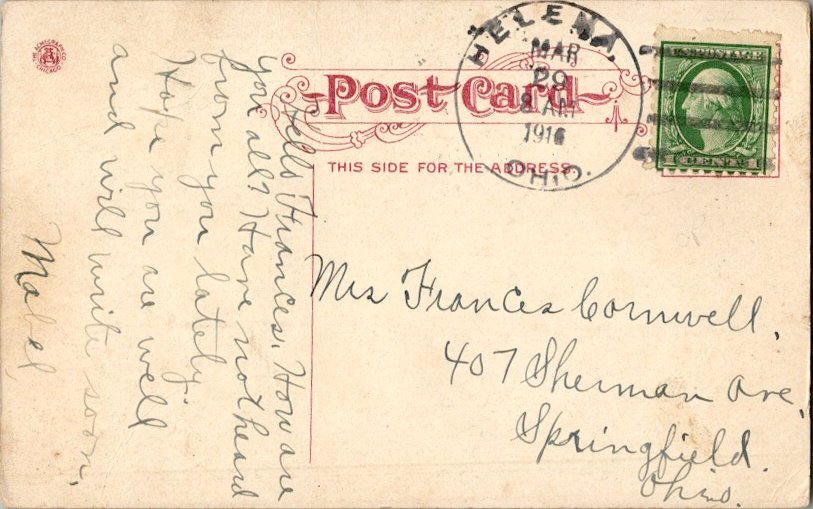 THE ACMEGRAPH CO.
CHICAGO
Post Card
THIS SIDE FOR THE ADDRESS.
HELENA
MAR
29
8 AM
1916
OHIO.
U.S. POSTAGE
1 CENT 1
Hello Frances. How are
you all? Have not heard
from you lately.
Hope you are well
and will write soon.
Mabel
Mrs Frances Cornwell.
407 Sherman Ave.
Springfield.
Ohio.